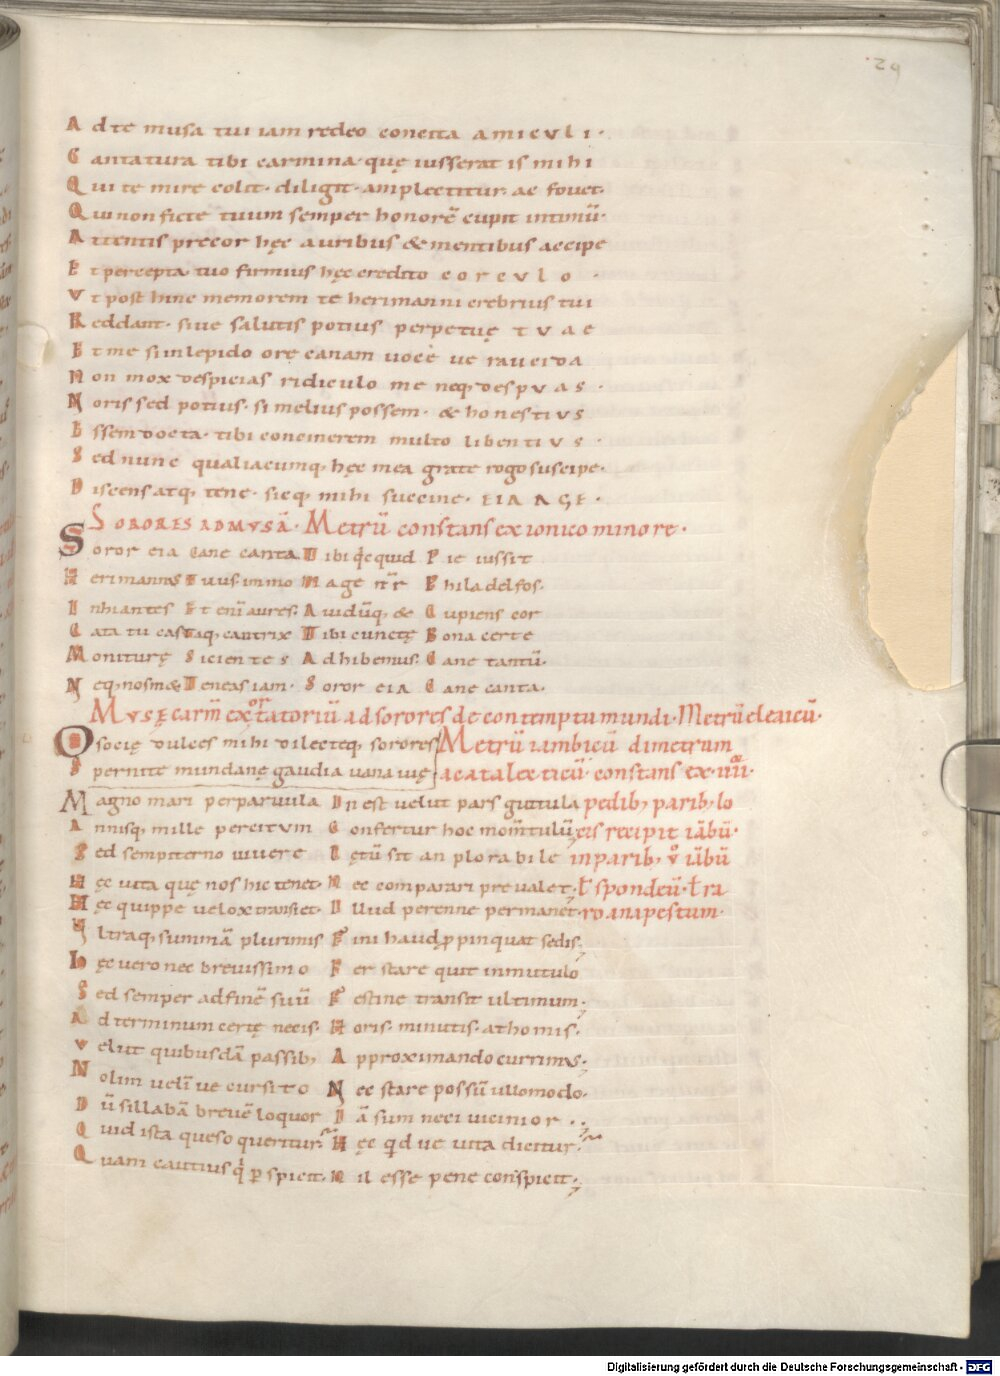 29
Ad te musa tui iam redeo concita amiculi·
Cantatura tibi carmina quę iusserat is mihi
Qui te mire colit· diligit· amplectitur ac fouet·
Qui non ficte tuum semper honorē cupit intimū·
Attentis precor hęc auribus & mentibus accipe
Et percepta tuo firmius hęc credito corculo·
Vt post hinc memorem te herimanni crebrius tui
Reddant· siue salutis potius perpetuę tuae
Et me si inlepido orę canam uoce ue raucida
Non mox despicias ridiculo me neq, despuas·
Noris sed potius· si melius possem· & honestius
Essem docta· tibi concinerem multo libentius·
Sed nunc qualiacumq, hęc mea grate rogo suscipe·
Discens atq, tene· sicq, mihi succine· EIA AGE·
SORORES AD MVSĀ· Metrū constans ex ionico minore·
Soror eia Cane canta Tibi quicquid Pie iussit
Herimannus Tuus immo Mage nr̄ Philadelfos·
Inhiantes Et enī aures· Auidūq, & Cupiens cor
Cata tu castaq, cantrix Tibi cunctę Bona certe
Moniturę Sicientes Adhibemus· Cane tantū·
Neq, nos m& Teneas iam· Soror eia Cane canta·
Mvsę carm̄ exortatoriū ad sorores de contemptu mundi· Metrū eleaicū·
O socię dulces mihi dilecteq, sorores Metrū iambicū dimetrum
Spernite mundanę gaudia uana uię· acatalecticū· constans ex·iiii·
Magno mari perparuula Inest uelut pars guttula pedib, parib, lo
Annisq, mille percitum Confertur hoc mom̄tulū; cis recipit iābū·
Sed sempiterno uiuere Lętū sit an plorabile inparib, v̊ iābū
Hęc uita quę nos hic tenet· Nec comparari preualet· ł spondeū· ł ra
Hęc quippe uelox transiet· Illud perenne permanet· ro anapestum·
Vltraq, summā plurimis Fini haud ꝓpinquat sedis;
Hęc uero nec breuissimo Fer stare quit inmutulo
Sed semper ad finē suū Festine transit ultimum;
Ad terminum certę necis· Horis· minutis· athomis·
Velut quibusdā passib, Approximando currimus;
Nolim uelī ue cursito Nec stare possū ullomodo·
Dū sillabā breuē loquor Iā sum neci uicinior··
Quid ista queso queritur Hęc qd ue uita dicitur·
Quam cautius q̇ ꝑspicit· Nil esse pene conspicit;
Digitalisierung gefördert durch die Deutsche Forschungsgemeinschaft - DFG